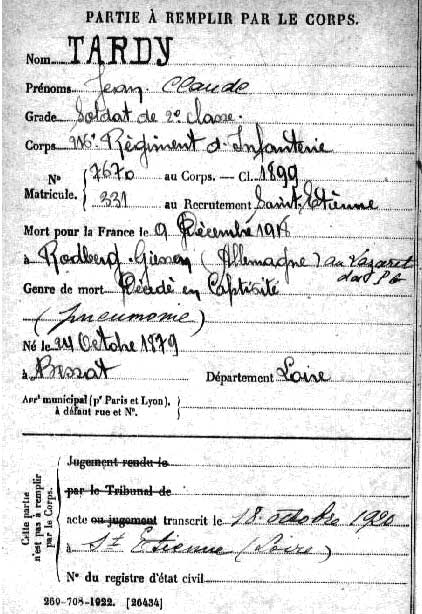 PARTIE À REMPLIR PAR LE CORPS.
Nom TARDY
Prénoms Jean Claude
Grade Soldat de 2e classe.
Corps Régiment d'Infanterie
N° 7670 au Corps. — Cl. 1899
Matricule. 331 au Recrutement Saint Etienne
Mort pour la France le 9 Décembre
à Rodberg-Giessen (Allemagne) au Lazaret
Genre de mort Décédé en Captivité
(pneumonie)
Né le 24 Octobre 1879
à Bessat Département Loire
Arrt municipal (pr Paris et Lyon),
à défaut rue et N°.
Cette partie
n'est pas à remplir
par le Corps.
Jugement rendu le
par le Tribunal de
acte ou jugement transcrit le 18 octobre 1920
à St Etienne (Loire)
N° du registre d'état civil
260-708-1922. [26434]